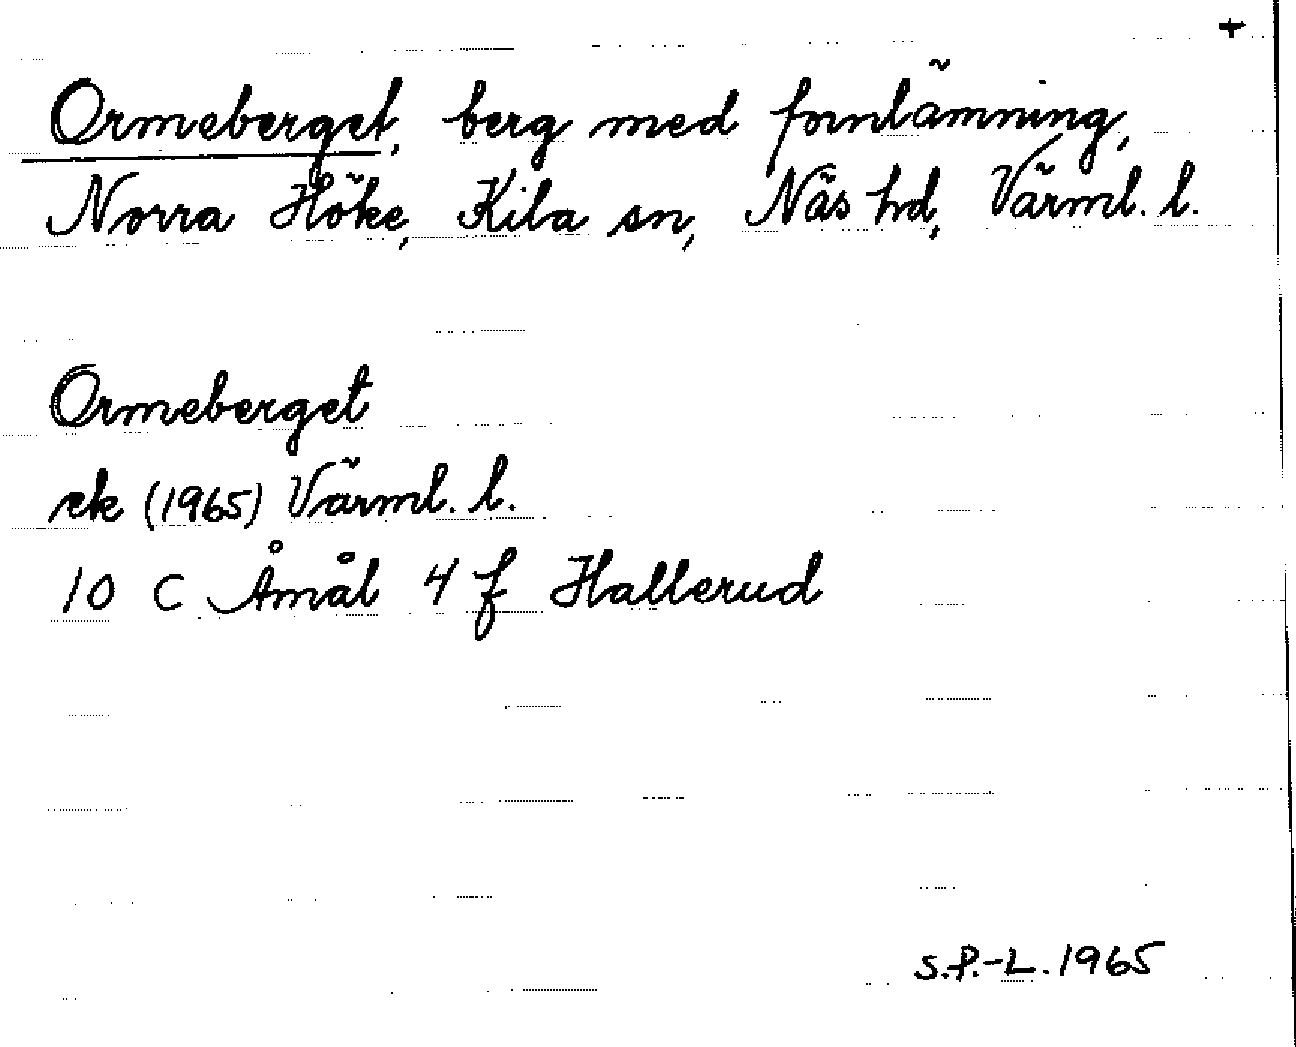 +
Ormeberget, berg med fornlämning,
Norra Höke, Kila sn, Näs hd, Värml. l.
Ormeberget
ek (1965) Värml. l.
10 C Åmål 4 f Hallerud
S.P.-L. 1965